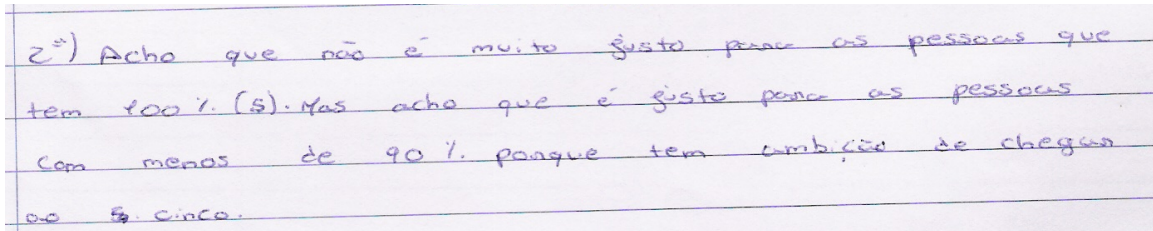 2ª) Acho que não é muito justo para as pessoas que
tem 100%. (5). Mas acho que é justo para as pessoas
com menos de 90%. porque tem ambição de chegar
ao 5. cinco.